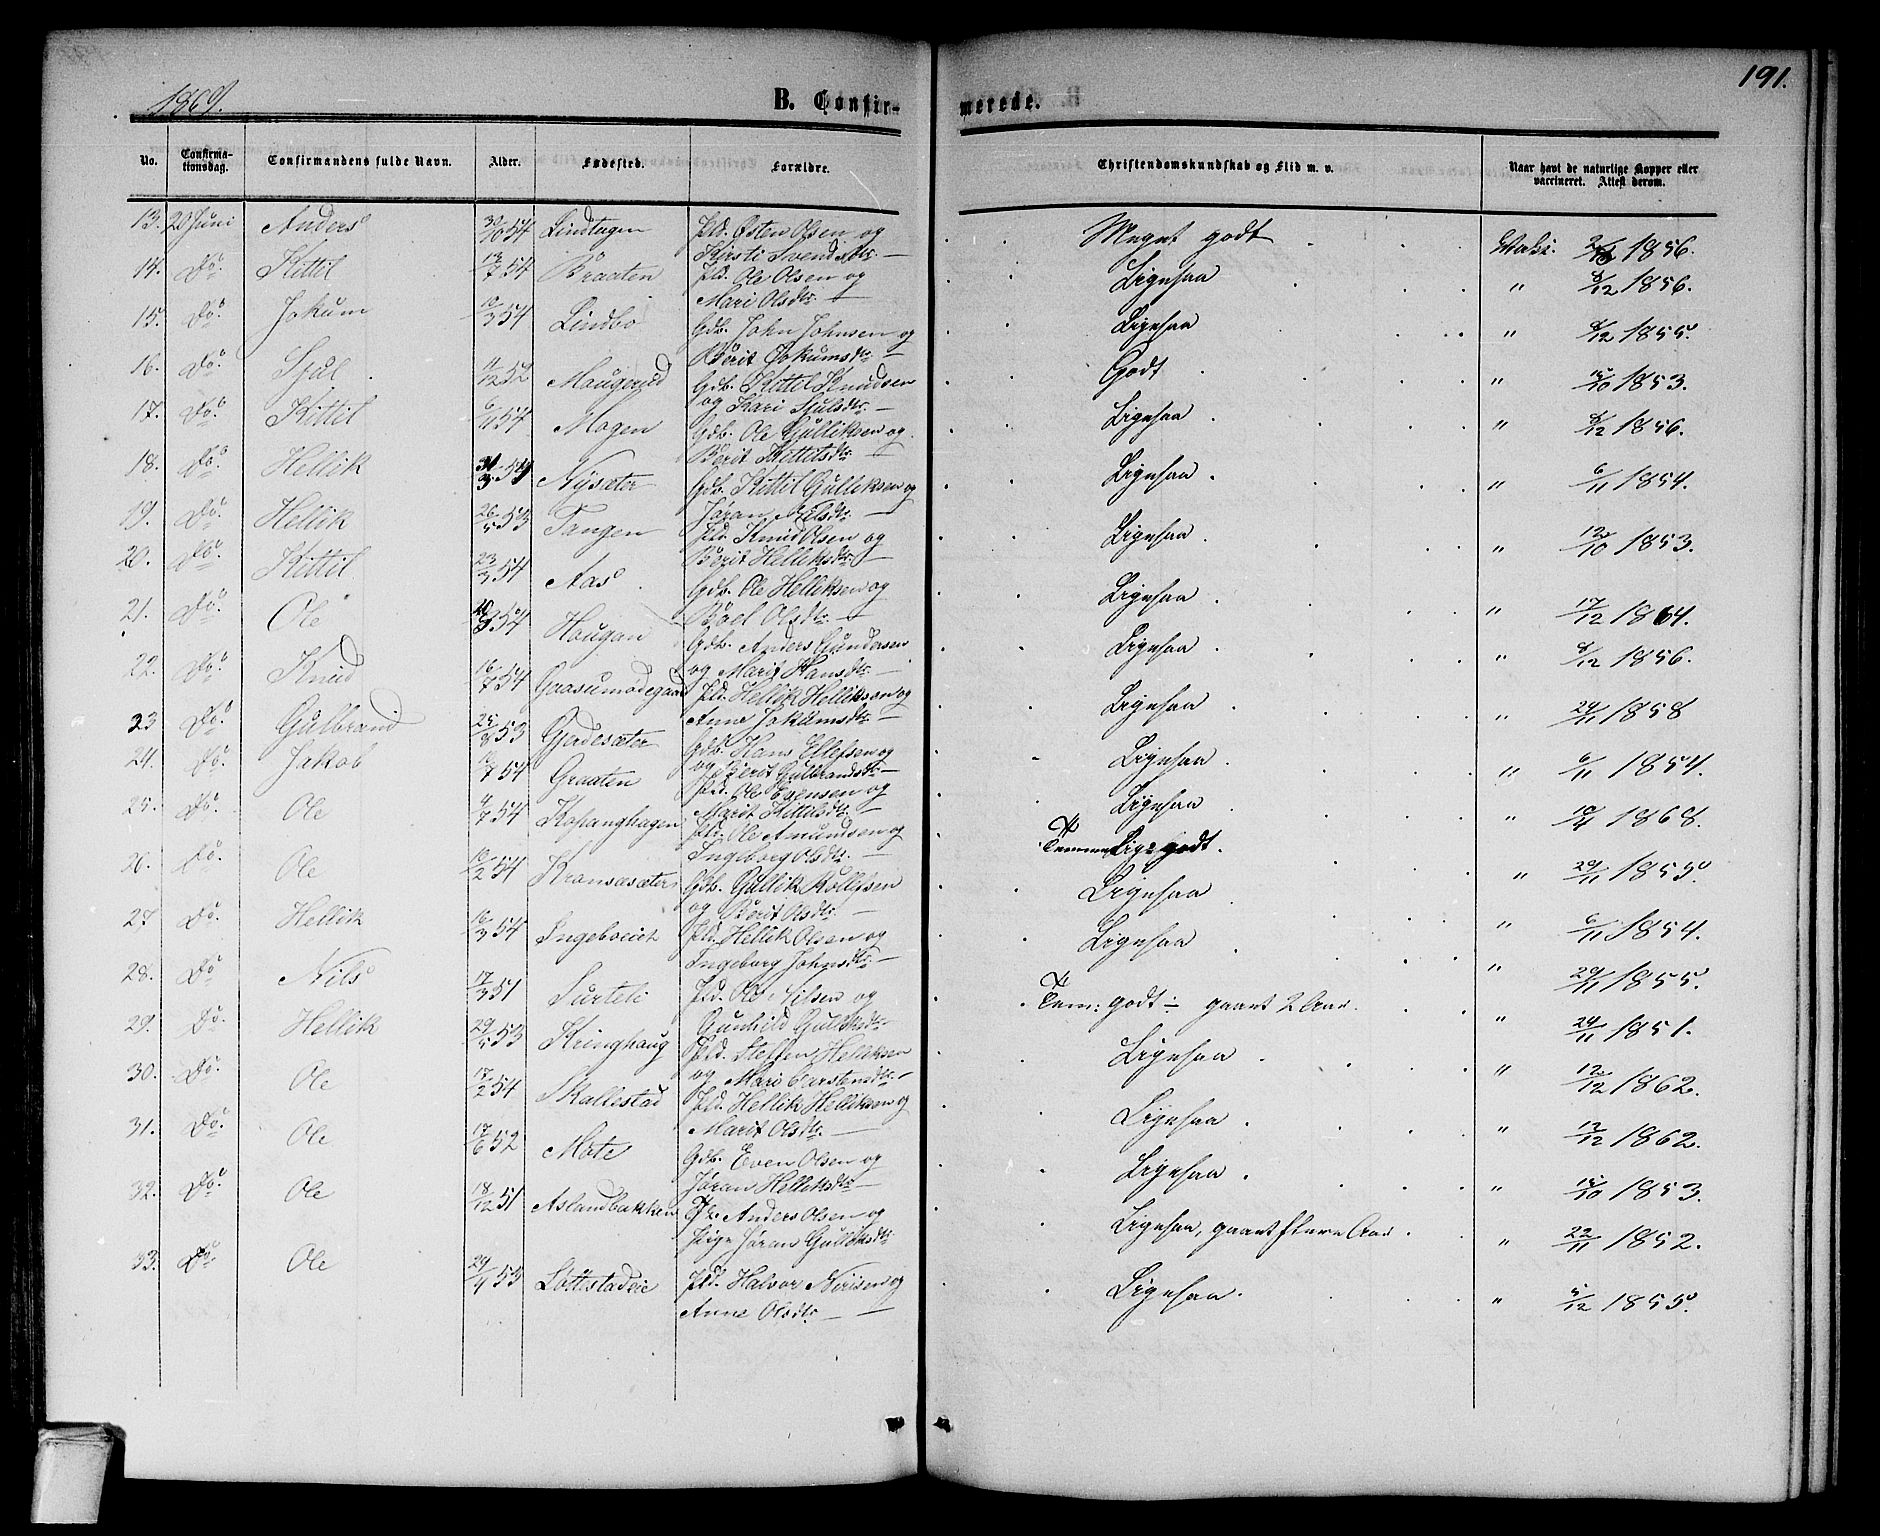 1869.
B. Confir-
merede.
191.
No. Confirma-tionsdag. Confirmandens fulde Navn. Alder. Fødested. Forældre. Christendomskundskab og Flid m. v. Naar havt de naturlige Kopper eller vaccineret. Attest derom.
13. 20 Juni Anders 30/10 54 Lindtagen Pld. Østen Olsen og Kirsti Svendsdtr. Meget godt Vaks. 1856.
14. Do. Kittil 13/7 54 Braaten Pld. Ole Olsen og Mari Olsdtr. — Ligesaa " 8/12 1856.
15. Do. Jokum 10/3 54 Lindbo Gdb. John Johnsen og Berit Jokumsdtr. — Ligesaa " 8/12 1855.
16. Do. Sjul 11/12 52 Maugerud Gdb. Kittil Knudsen og Kari Sjulsdtr. — Godt " 15/10 1853.
17. Do. Kittil 6/11 54 Mogen Gdb. Ole Gulliksen og Berit Kittilsdtr. — Ligesaa " 8/12 1856.
18. Do. Hellik Nysæter Gdb. Kittil Gulliksen og Jøran Nilsdtr. — Ligesaa " 6/11 1854.
19. Do. Hellik 26/5 53 Tangen Pld. Knud Olsen og Berit Helliksdtr. — Ligesaa " 12/10 1853.
20. Do. Kittil 23/3 54 Aas Gdb. Ole Helliksen og Böel Olsdtr. — Ligesaa " 17/12 1864.
21. Do. Ole 54 Hougan Gdb. Anders Gundersen og Marit Hansdtr. — Ligesaa " 8/12 1856.
22. Do. Knud 16/7 54 Graasumødegaard Pld. Hellik Helliksen og Anne Jokumsdtr. — Ligesaa " 29/11 1858
23 Do. Gulbrand 25/8 53 Gjerdesæter Gdb. Hans Ellefsen og og Berit Gulbrandsdtr. — Ligesaa " 6/11 1854.
24. Do. Jakob 10/7 54 Graaten Pld. Ole Evensen og Marit Kittilsdtr. — Ligesaa " 10/4 1868.
25. Do. Ole 9/7 54 Kopanghagen Pld. Ole Amundsen og Ingeborg Olsdtr. — Temmelig godt. " 29/11 1855.
26. Do. Ole 10/2 54 Kronsæsæter Gdb. Gullik Rollefsen og Berit Olsdtr. — Ligesaa " 6/11 1854.
27 Do. Hellik 16/3 54 Ingeboeiet Pld. Hellik Olsen og Ingeborg Johnsdtr. — Ligesaa " 29/11 1855.
28. Do. Nils 17/3 51 Surteli Pld. Ole Nilsen og Gunhild Gulliksdtr. Tem: godt ÷ gaaet 2 Aar " 29/11 1851.
29. Do. Hellik 29/5 53 Kringhaug Pld. Steffen Helliksen og Mari Carstensdtr. Ligesaa " 12/12 1862.
30. Do. Ole 17/2 54 Skallestad Pld. Hellik Helliksen og Marit Olsdtr. — Ligesaa " 12/12 1862.
31. Do. Ole 17/6 52 Mote Gdb. Even Olsen og Jøran Helliksdtr. — Ligesaa " 15/10 1853.
32. Do. Ole 18/12 51 Aslandbakken Anders Olsen og Pige Jøran Gulliksdtr. Ligesaa, gaaet flere Aar " 22/11 1852.
33. Do. Ole 29/4 53 Loftstadeie Pld. Halvor Nirisen og Anne Olsdtr. — Ligesaa. " 5/12 1855.